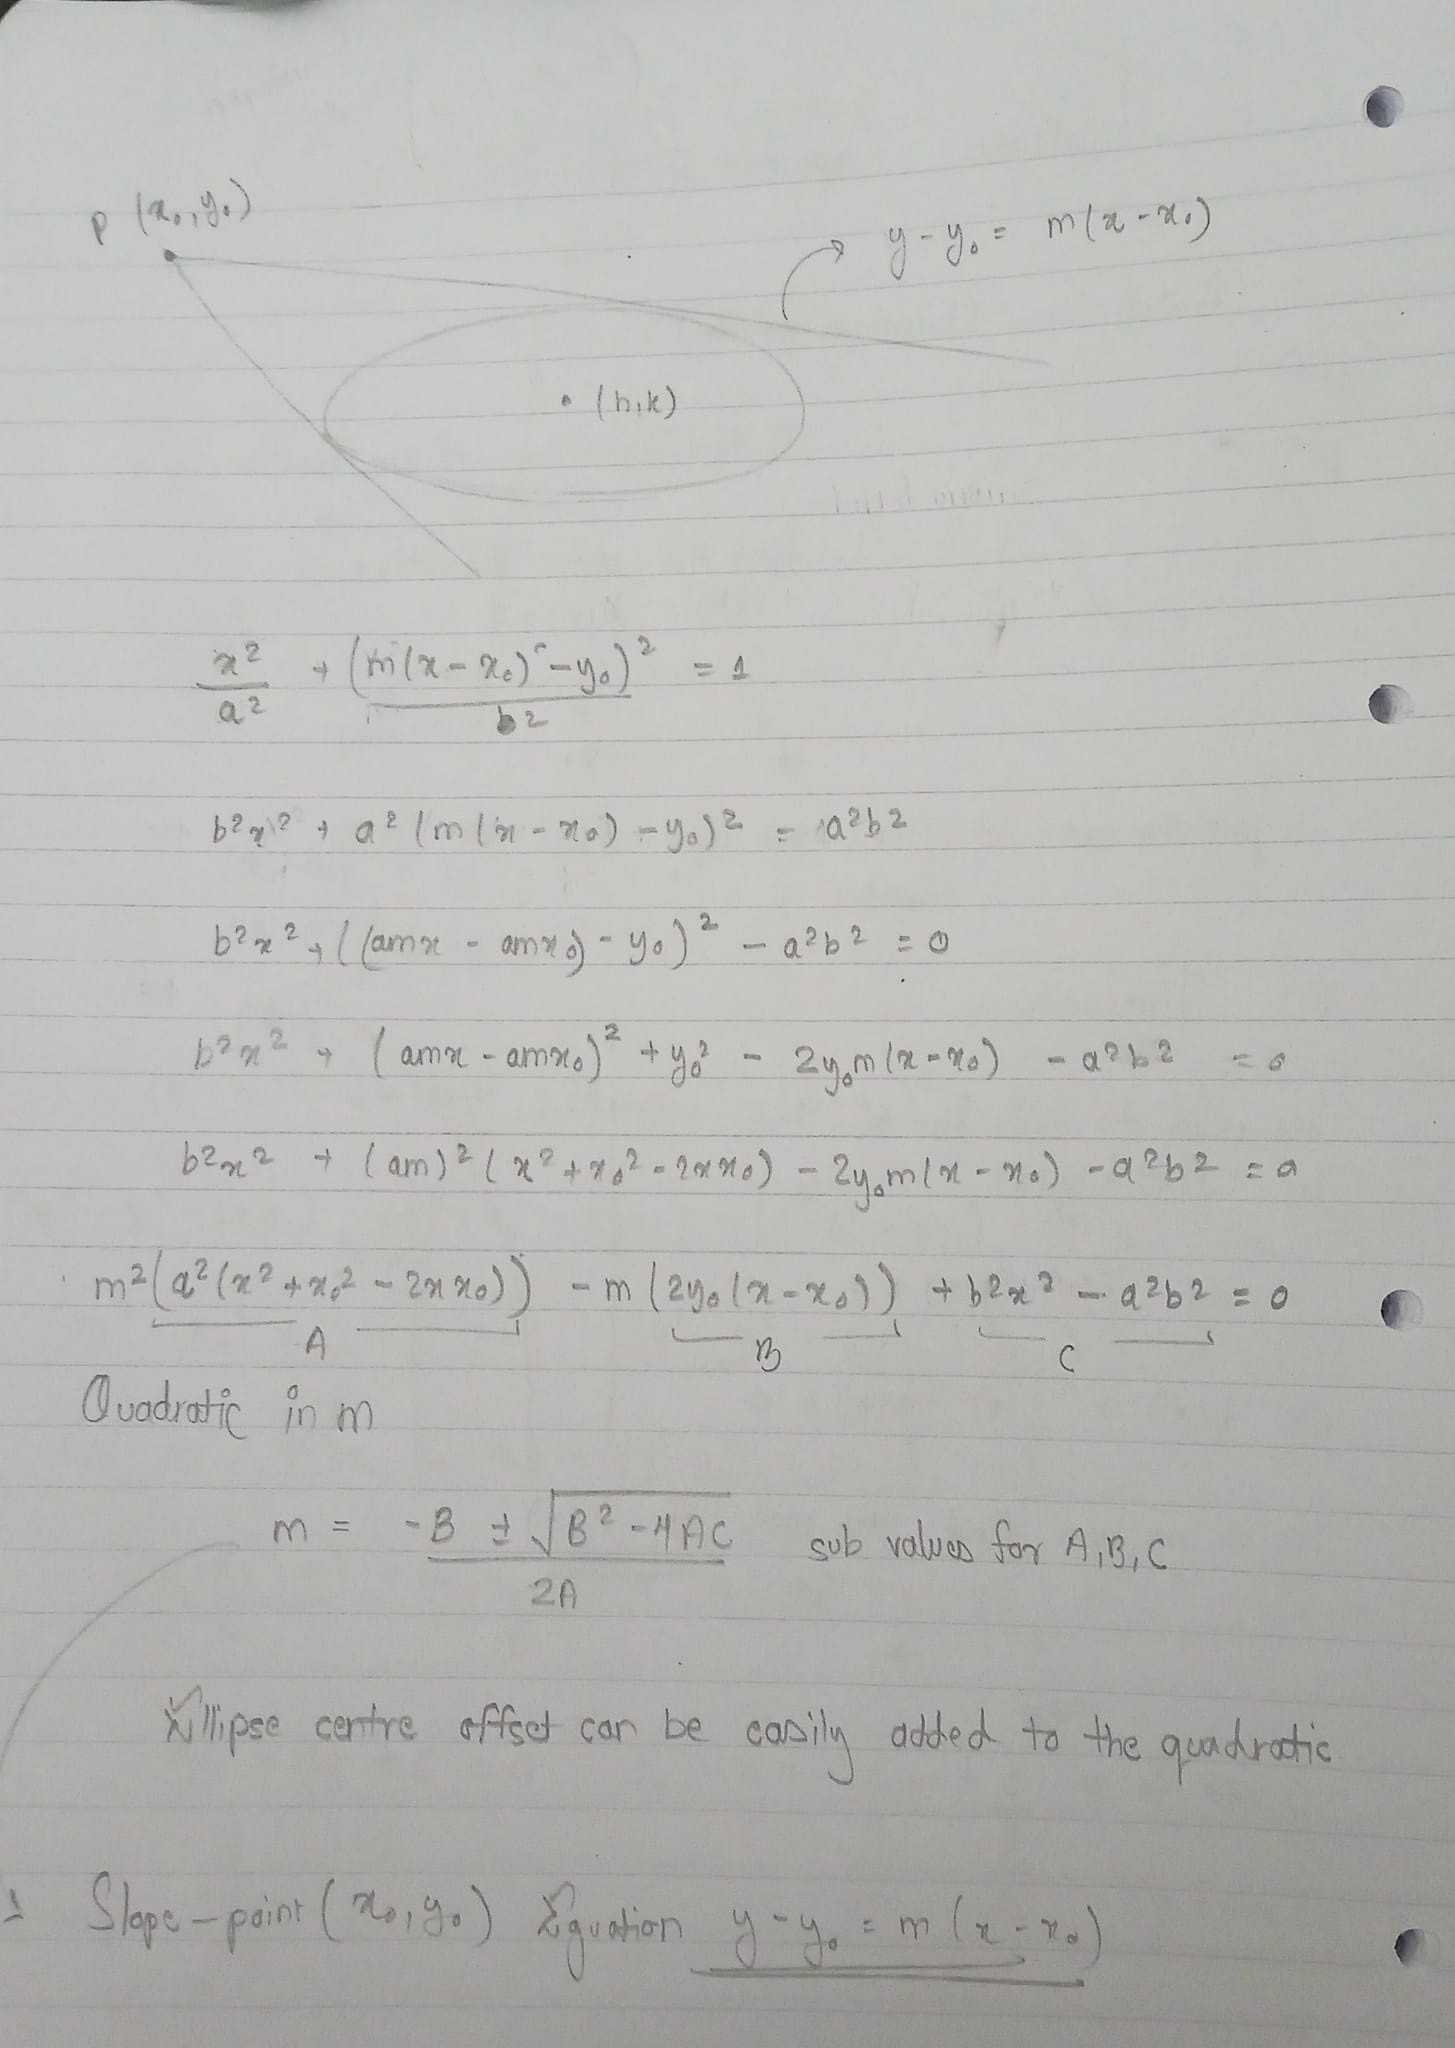 P (x₀, y₀)
y - y₀ = m(x - x₀)
(h, k)
x²/a² + (m(x - x₀) - y₀)²/b² = 1
b²x² + a²(m(x - x₀) - y₀)² = a²b²
b²x² + ((amx - amx₀) - y₀)² - a²b² = 0
b²x² + (amx - amx₀)² + y₀² - 2y₀m(x - x₀) - a²b² = 0
b²x² + (am)²(x² + x₀² - 2xx₀) - 2y₀m(x - x₀) - a²b² = 0
m²(a²(x² + x₀² - 2xx₀)) - m(2y₀(x - x₀)) + b²x² - a²b² = 0
A B C
Quadratic in m
m = -B ± √(B² - 4AC) / 2A sub values for A, B, C
Ellipse centre offset can be easily added to the quadratic
Slope-point (x₀, y₀) Equation y - y₀ = m(x - x₀)